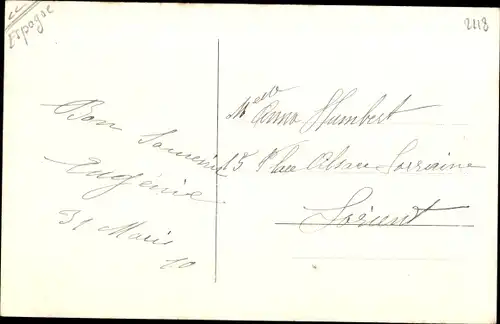 Espagne
2118
Bon Souvenir
Eugénie
31 Mars
10
Melle Anna Humbert
15 Place Alsace Lorraine
Lorient